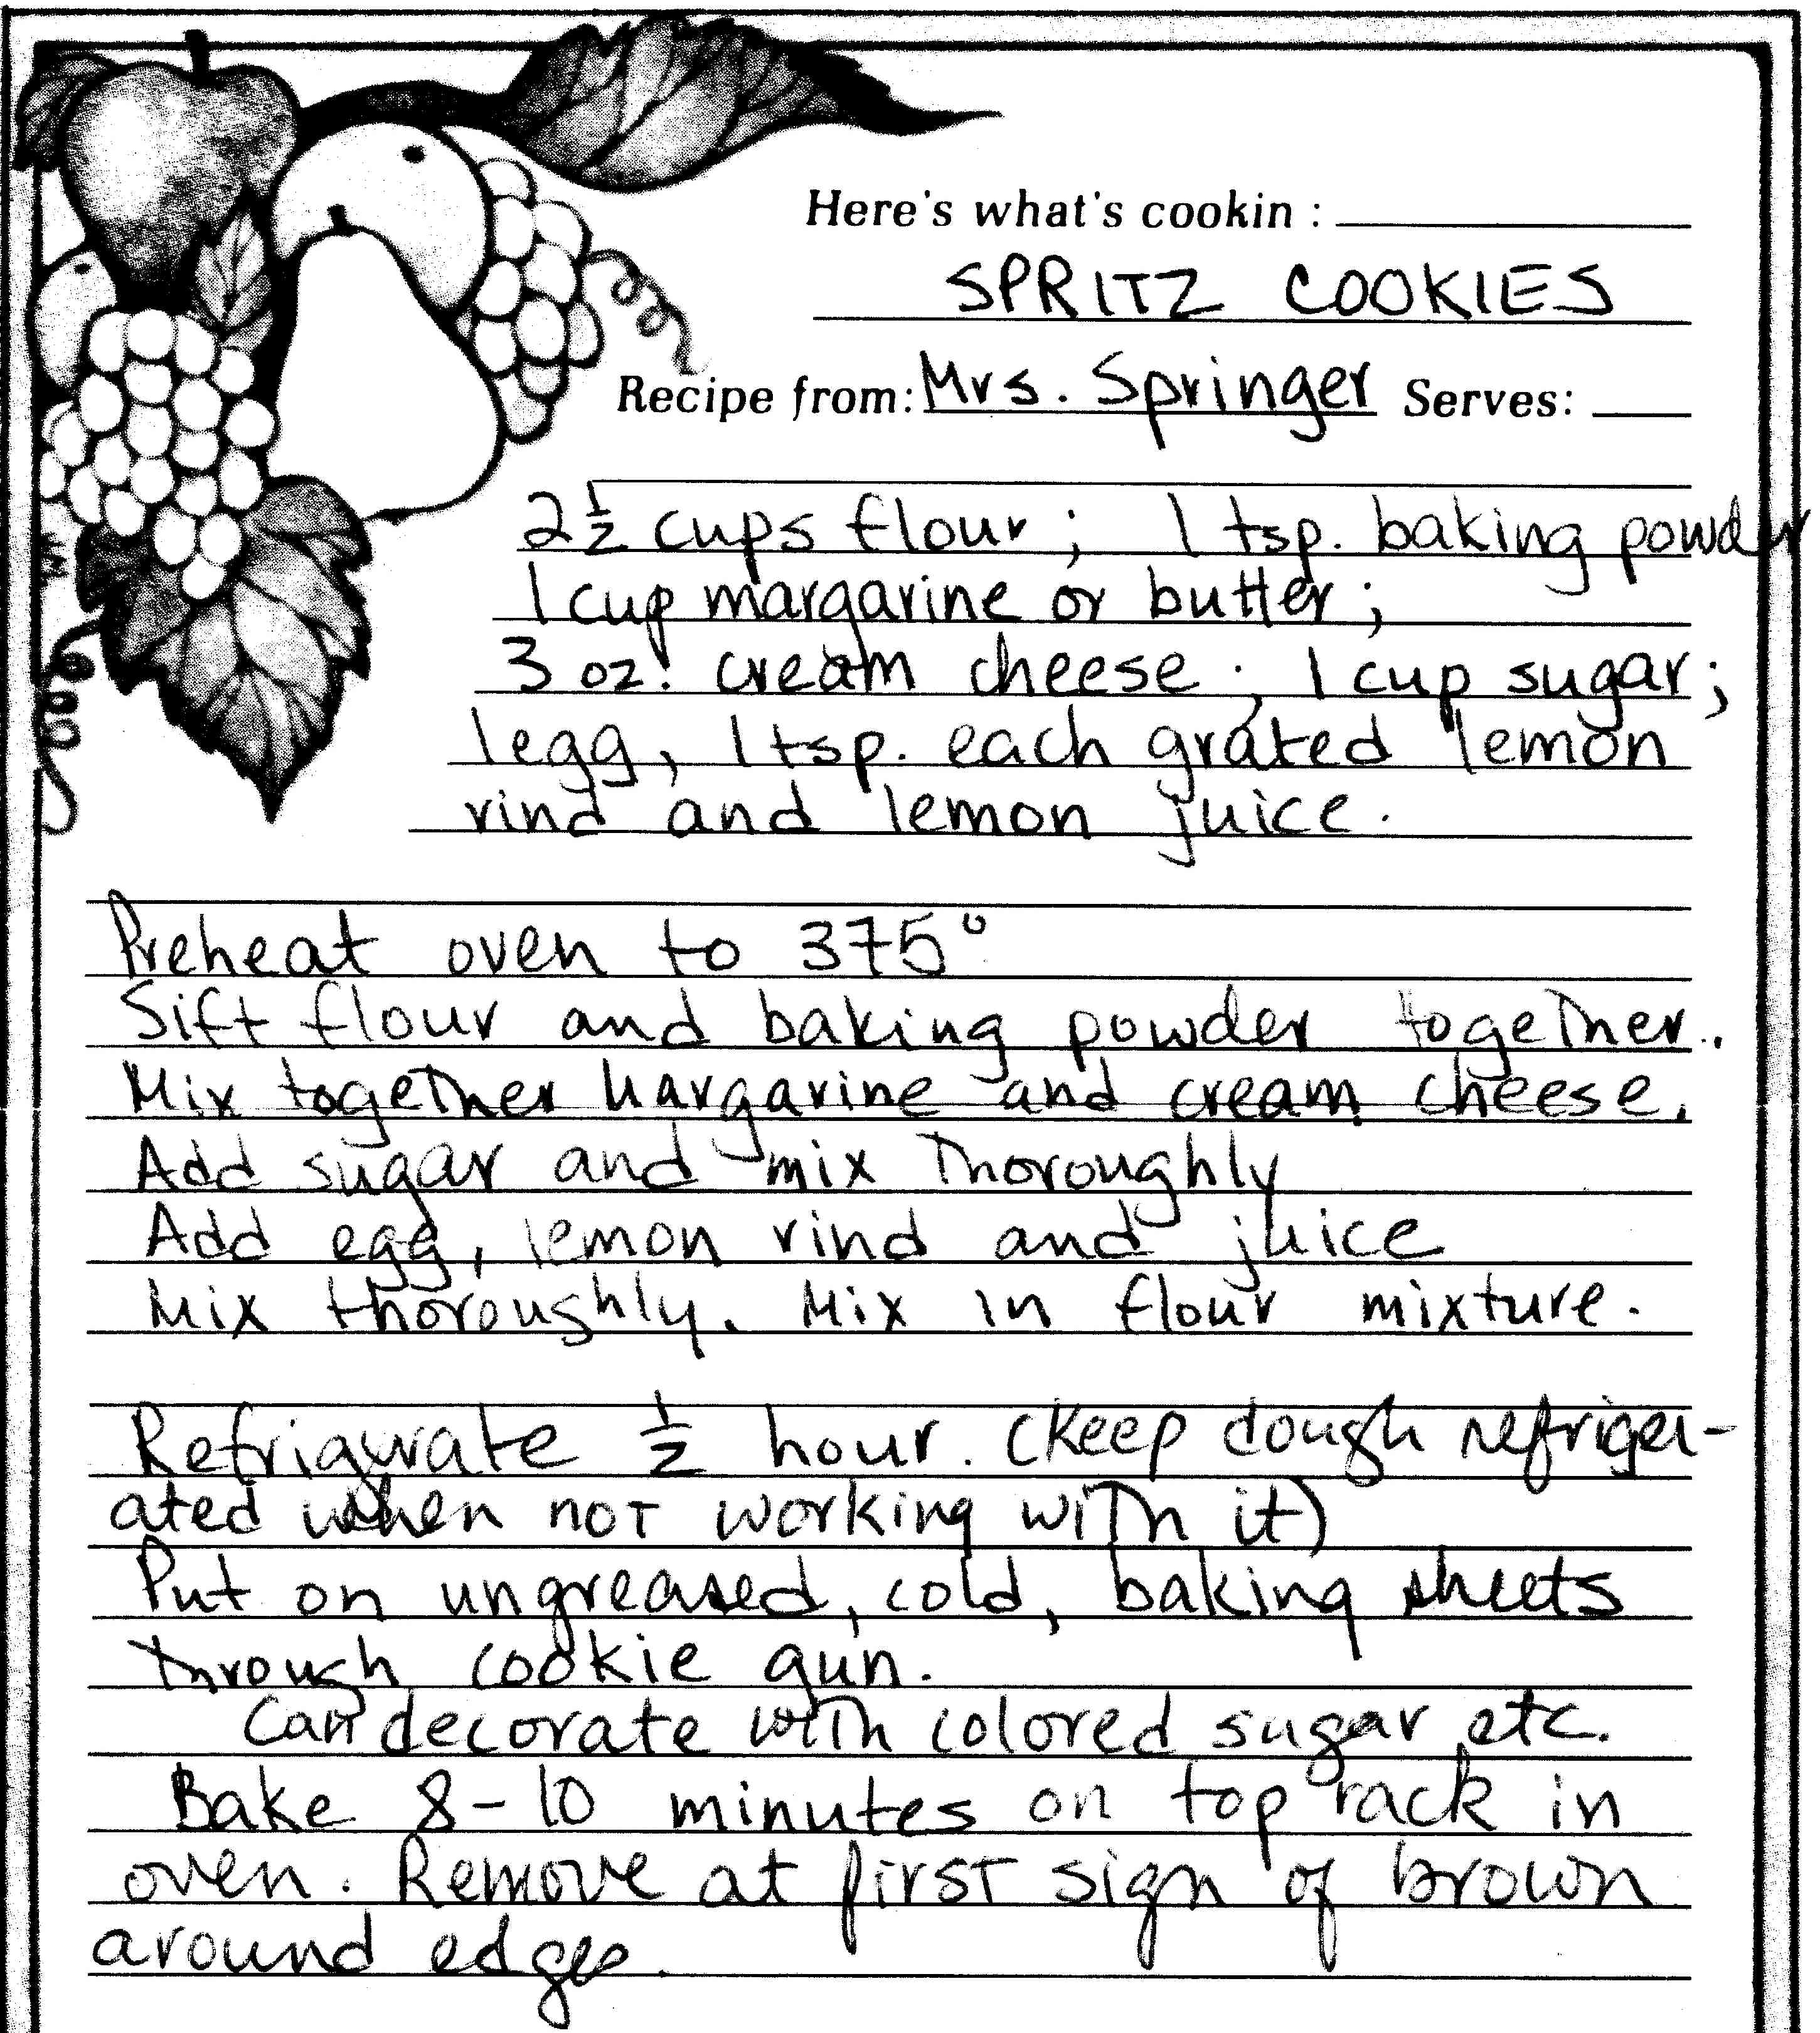 Here's what's cookin :
SPRITZ COOKIES
Recipe from: Mrs. Springer Serves:
2½ cups flour; 1 tsp. baking powder
1 cup margarine or butter;
3 oz. cream cheese; 1 cup sugar;
1 egg, 1 tsp. each grated lemon
rind and lemon juice.
Preheat oven to 375°
Sift flour and baking powder together.
Mix together Margarine and cream cheese.
Add sugar and mix thoroughly
Add egg, lemon rind and juice
Mix thoroughly. Mix in flour mixture.
Refrigerate ½ hour. (Keep dough refriger-
ated when not working with it)
Put on ungreased, cold, baking sheets
through cookie gun.
Can decorate with colored sugar etc.
Bake 8-10 minutes on top rack in
oven. Remove at first sign of brown
around edges.